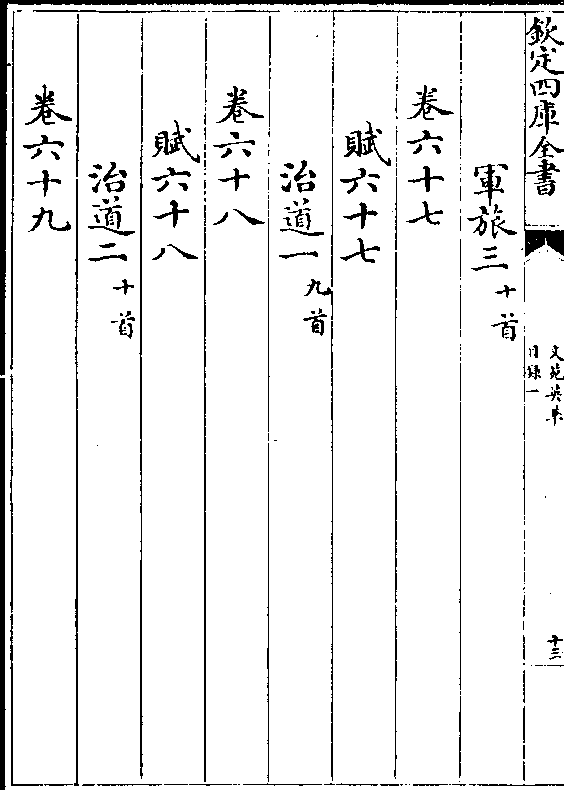 欽定四庫全書
文苑英華
目録一
十三
軍旅三十首
卷六十七
賦六十七
治道一九首
卷六十八
賦六十八
治道二十首
卷六十九